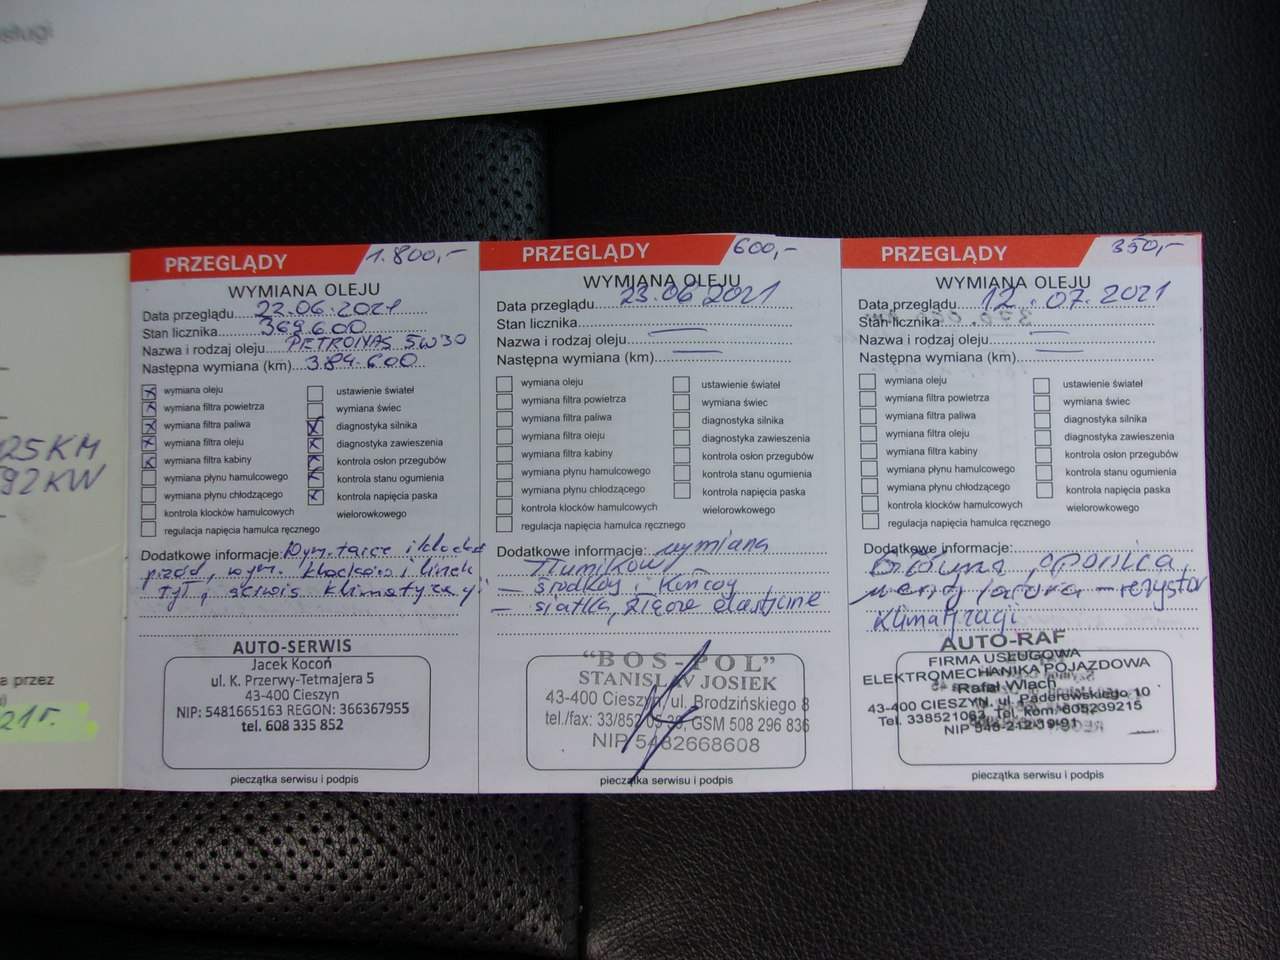 sługi
25 KM
92 KW
a przez
21 r.
PRZEGLĄDY 1.800,-
WYMIANA OLEJU
Data przeglądu 22.06.2021
Stan licznika 369 600
Nazwa i rodzaj oleju PETRONAS 5W30
Następna wymiana (km) 384.600
wymiana oleju
wymiana filtra powietrza
wymiana filtra paliwa
wymiana filtra oleju
wymiana filtra kabiny
wymiana płynu hamulcowego
wymiana płynu chłodzącego
kontrola klocków hamulcowych
regulacja napięcia hamulca ręcznego
ustawienie świateł
wymiana świec
diagnostyka silnika
diagnostyka zawieszenia
kontrola osłon przegubów
kontrola stanu ogumienia
kontrola napięcia paska
wielorowkowego
Dodatkowe informacje: Wym. tarcz i klocków
przód, wym. klocków i linek
tył, serwis klimatyzacji
AUTO-SERWIS
Jacek Kocoń
ul. K. Przerwy-Tetmajera 5
43-400 Cieszyn
NIP: 5481665163 REGON: 366367955
tel. 608 335 852
pieczątka serwisu i podpis
PRZEGLĄDY 600,-
WYMIANA OLEJU
Data przeglądu 23.06 2021
Stan licznika
Nazwa i rodzaj oleju
Następna wymiana (km)
wymiana oleju
wymiana filtra powietrza
wymiana filtra paliwa
wymiana filtra oleju
wymiana filtra kabiny
wymiana płynu hamulcowego
wymiana płynu chłodzącego
kontrola klocków hamulcowych
regulacja napięcia hamulca ręcznego
ustawienie świateł
wymiana świec
diagnostyka silnika
diagnostyka zawieszenia
kontrola osłon przegubów
kontrola stanu ogumienia
kontrola napięcia paska
wielorowkowego
Dodatkowe informacje: wymiana
Tłumików
- środkowy i końcowy
- siatka, złącze elastyczne
"BOS-POL"
STANISŁAW JOSIEK
43-400 Cieszyn, ul. Brodzińskiego 8
tel./fax: 33/852 05 39, GSM 508 296 836
NIP 5482668608
pieczątka serwisu i podpis
PRZEGLĄDY 350,-
WYMIANA OLEJU
Data przeglądu 12.07.2021
Stan licznika
Nazwa i rodzaj oleju
Następna wymiana (km)
wymiana oleju
wymiana filtra powietrza
wymiana filtra paliwa
wymiana filtra oleju
wymiana filtra kabiny
wymiana płynu hamulcowego
wymiana płynu chłodzącego
kontrola klocków hamulcowych
regulacja napięcia hamulca ręcznego
ustawienie świateł
wymiana świec
diagnostyka silnika
diagnostyka zawieszenia
kontrola osłon przegubów
kontrola stanu ogumienia
kontrola napięcia paska
wielorowkowego
Dodatkowe informacje:
opornica
rezystor
klimatyzacji
AUTO-RAF
FIRMA USŁUGOWA
ELEKTROMECHANIKA POJAZDOWA
Rafał Wlach
43-400 CIESZYN, ul. Paderewskiego 10
Tel. 338521062, Tel. kom. 605239215
NIP 548-212-39-91
pieczątka serwisu i podpis